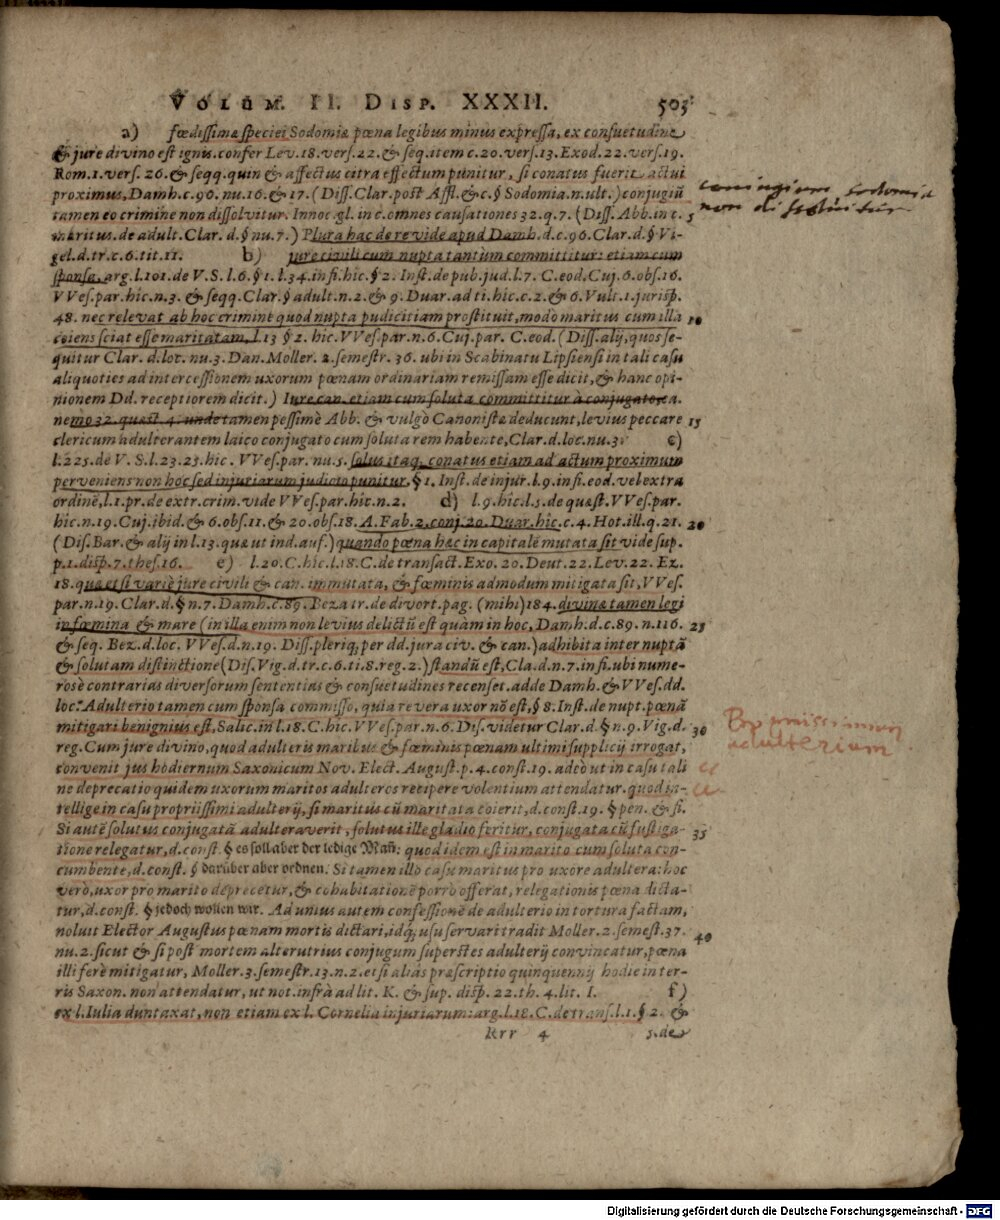 VOLUM. II. DISP. XXXII. 505
a) fœdissimæ speciei Sodomiæ pœna legibus minus expressa, ex consuetudine
& jure divino est ignis. confer Lev. 18. vers. 22. & seq. item c. 20. vers. 13. Exod. 22. vers. 19.
Rom. 1. vers. 26. & seqq. quin & affectus citra effectum punitur, si conatus fuerit actui
proximus, Damh. c. 96. nu. 16. & 17. (Diss. Clar. post Affl. & c. § Sodomia. n. ult.) conjugiũ
tamen eo crimine non dissolvitur. Innoc. gl. in c. omnes causationes 32. q. 7. (Diss. Abb. in c. 5
maritus. de adult. Clar. d. § nu. 7.) Plura hac de re vide apud Damh. d. c. 96. Clar. d. § Vi-
gel. d. tr. c. 6. tit. 11. b) jure civili cum nupta tantùm committitur: etiam cum
sponsa, arg. l. 101. de V. S. l. 6. § 1. l. 34. in fi. hîc. § 2. Inst. de pub. jud. l. 7. C. eod. Cuj. 6. obs. 16.
VVes. par. hîc. n. 3. & seqq. Clar. § adult. n. 2. & 9. Duar. ad ti. hîc. c. 2. & 6. Vult. 1. jurisp.
48. nec relevat ab hoc crimine quod nupta pudicitiam prostituit, modò maritus cum illa 10
coiens sciat esse maritatam, l. 13 § 2. hîc. VVes. par. n. 6. Cuj. par. C. eod. (Diss. alij, quos se-
quitur Clar. d. loc. nu. 3. Dan. Moller. 2. semestr. 36. ubi in Scabinatu Lipsiensi in tali casu
aliquoties ad intercessionem uxorum pœnam ordinariam remissam esse dicit, & hanc opi-
nionem Dd. receptiorem dicit.) Iure can. etiam cum soluta committitur à conjugato, ca.
nemo 32. quæst. 4. unde tamen pessimè Abb. & vulgò Canonistæ deducunt, levius peccare 15
clericum adulterantem laico conjugato cum soluta rem habente, Clar. d. loc. nu. 3. c)
l. 225. de V. S. l. 23. 23. hîc. VVes. par. nu. 5. solus itaq, conatus etiam ad actum proximum
perveniens non hoc sed injuriarum judicio punitur. § 1. Inst. de injur. l. 9. in fi. eod. vel extra
ordinẽ, l. 1. pr. de extr. crim. vide VVes. par. hîc. n. 2. d) l. 9. hîc. l. 5. de quæst. VVes. par.
hîc. n. 19. Cuj. ibid. & 6. obs. 11. & 20. obs. 18. A. Fab. 2. conj. 20. Duar. hîc. c. 4. Hot. ill. q. 21. 20
(Dis. Bar. & alij in l. 13. qua ut ind. auf.) quando pœna hæc in capitalẽ mutata sit vide sup.
p. 1. disp. 7. thes. 16. e) l. 20. C. hîc. l. 18. C. de transact. Exo. 20. Deut. 22. Lev. 22. Ez.
18. quæ etsi variè jure civili & can. immutata, & fœminis admodum mitigata sit, VVes.
par. n. 19. Clar. d. § n. 7. Damh. c. 89. Beza tr. de divort. pag. (mihi) 184. divinæ tamen legi
in fœmina & mare (in illa enim non levius delictũ est quàm in hoc, Damh. d. c. 89. n. 116. 25
& seq. Bez. d. loc. VVes. d. n. 19. Diss. pleriq, per dd. jura civ. & can.) adhibita inter nuptã
& solutam distinctione (Dis. Vig. d. tr. c. 6. ti. 8. reg. 2.) standũ est, Cla. d. n. 7. in fi. ubi nume-
rosè contrarias diversorum sententias & consuetudines recenset. adde Damh. & VVes. dd.
loc. Adulterio tamen cum sponsa commisso, quia revera uxor nõ est, § 8. Inst. de nupt. pœnã
mitigari benignius est, Salic. in l. 18. C. hîc. VVes. par. n. 6. Dis. videtur Clar. d. § n. 9. Vig. d. 30
reg. Cum jure divino, quod adulteris maribus & fœminis pœnam ultimi supplicij irrogat,
convenit jus hodiernum Saxonicum Nov. Elect. August. p. 4. const. 19. adeò ut in casu tali
ne deprecatio quidem uxorum maritos adulteros recipere volentium attendatur. quod in-
tellige in casu propriissimi adulterij, si maritus cũ maritata coierit, d. const. 19. § pen. & fi.
Si autẽ solutus conjugatã adulteraverit, solutus ille gladio feritur, conjugata cũ fustiga- 35
tione relegatur, d. const. § es soll aber der ledige Mañ: quod idem est in marito cum soluta con-
cumbente, d. const. § darüber aber ordnen. Si tamen illo casu maritus pro uxore adultera: hoc
verò, uxor pro marito deprecetur, & cohabitationẽ porrò offerat, relegationis pœna dicta-
tur, d. const. § jedoch wollen wir. Ad unius autem confessionẽ de adulterio in tortura factam,
noluit Elector Augustus pœnam mortis dictari, idq, usu servari tradit Moller. 2. semest. 37. 40
nu. 2. sicut & si post mortem alterutrius conjugum superstes adulterij convincatur, pœna
illi ferè mitigatur, Moller. 3. semestr. 13. n. 2. etsi aliàs præscriptio quinquennij hodie in ter-
ris Saxon. non attendatur, ut not. infrà ad lit. K. & sup. disp. 22. th. 4. lit. I. f)
ex l. Iulia duntaxat, non etiam ex l. Cornelia injuriarum: arg. l. 18. C. de trans. l. 1. § 2. &
Rrr 4 s. de
coniugium sodomia
non dissolvitur
Propriissimum
adulterium
Digitalisierung gefördert durch die Deutsche Forschungsgemeinschaft - DFG